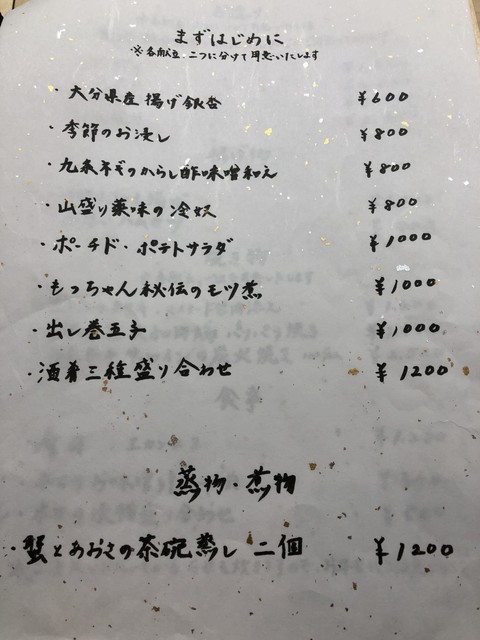 まずはじめに
※各献立、二つに分けて用意いたします
・大分県産揚げ銀杏 ¥600
・季節のお浸し ¥800
・九条ネギのからし酢味噌和え ¥800
・山盛り薬味の冷奴 ¥800
・ポーチド・ポテトサラダ ¥1000
・もっちゃん秘伝のモツ煮 ¥1000
・出し巻玉子 ¥1000
・酒肴三種盛り合わせ ¥1200
蒸物・煮物
・蟹とあおさの茶碗蒸し 二個 ¥1200